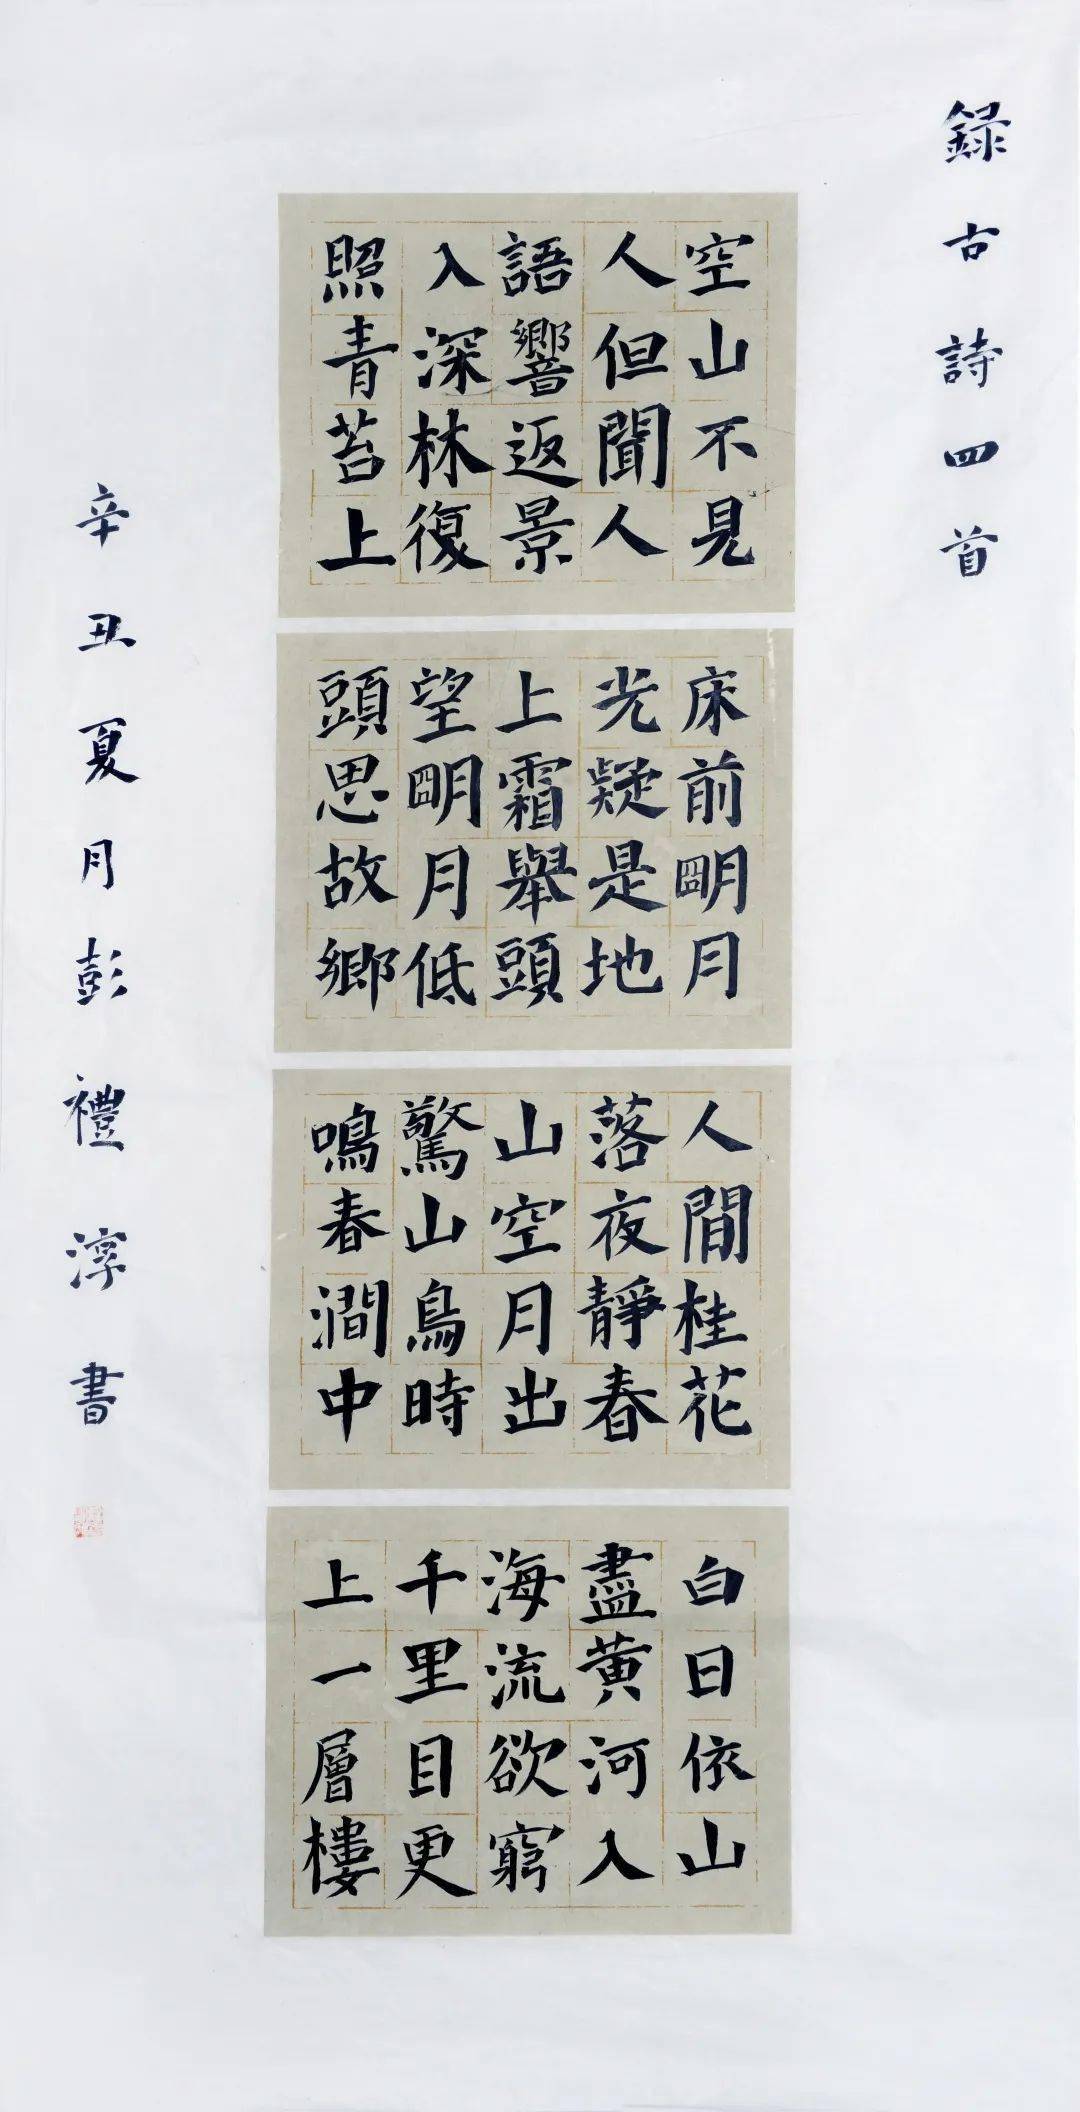 録古詩四首
空山不見
人但聞人
語響返景
入深林復
照青苔上
床前明月
光疑是地
上霜舉頭
望明月低
頭思故鄉
人間桂花
落夜靜春
山空月出
驚山鳥時
鳴春澗中
白日依山
盡黄河入
海流欲窮
千里目更
上一層樓
辛丑夏月彭禮淳書